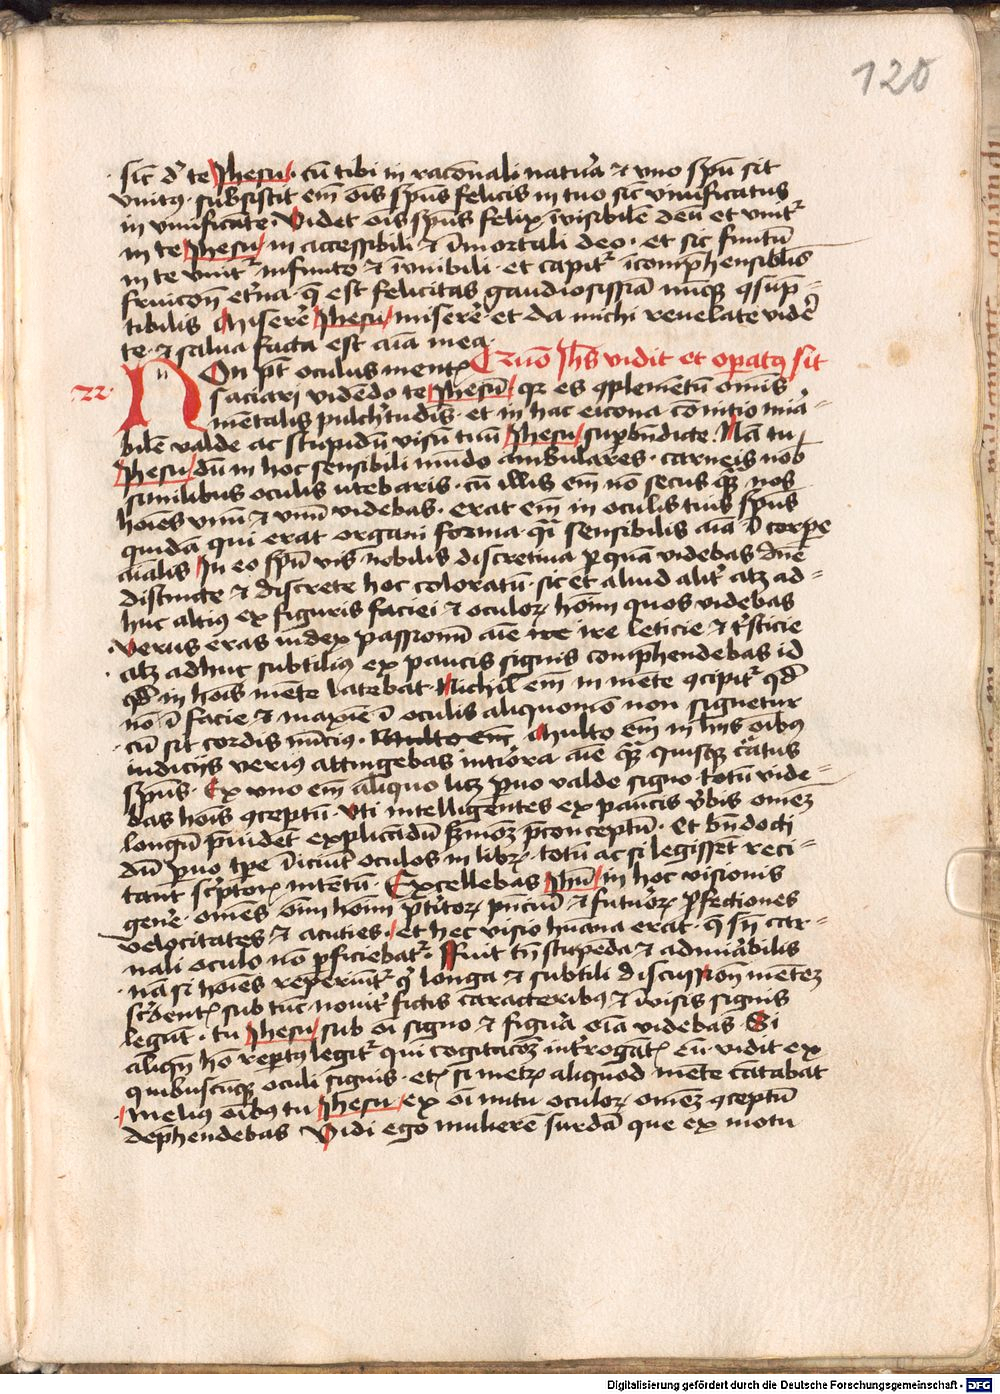 120
sic̄ d' te Jhesu · cū tibi in racōnali natu'a ⁊ vno spū sit
vnitꝰ · subsistit em̄ oīs spūs felicis in tuo sic vnificatus
in vnificate · Videt oīs spūs felix īvisibilē deū et vnit᷑
in te Jhesu in accessibili ⁊ īmortali deo · et sic finitū
in te vnit᷑ infinito ⁊ īvnibili · et capit᷑ īcomp̄hensibilis
fruicōn et'na · q̄ est felicitas gaudiosissīa nūcq̨ ꝯsūp-
tibilis Miserē Jhesu miserē et da michi reuelate vidē
te · ⁊ salua facta est aīa mea ·
Quō Jhs vidit et opatꝰ sit
22 · Non pt̄ oculus mentꝭ
saciari vidēdo te Jhesū · qꝛ es ꝯplemētū omīs
mētalis pulch'tudīs · et in hac eicona cōnitio mirā-
bilē valde ac stupidū visū tuū Jhesu supbn̄dicte · Nā tu
Jhesu dū in hoc sensibili mūdo ambulares · carneis nob
similibus oculis utebaris · cū illis em̄ nō secus qᷓꝫ nos
hoīes vnū ⁊ vnū videbas · erat em̄ in oculis tuis spūs
quidā qui erat organi forma · qᷓi sensibilis aīa ī corpe
aīalis In eo spū vis nobilis discretiua ꝑ quā videbas dnē
distincte ⁊ discrete hoc coloratū · sic et aliud alit᷑ atꝫ ad-
huc altiꝰ ex figuris faciei ⁊ oculoꝝ hoīm quos videbas
verus eras iudex passionū aīe ire leticie ⁊ t'sticie
atꝫ adhuc subtiliꝰ ex paucis signis comp̄hendebas id
qd̄ in hoīs mēte latebat · Nichil em̄ in mēte ꝯcipit᷑ qd̄
nō ī facie ⁊ maxīe ī oculis aliquomō non signetur
cū sit cordis nūciꝰ · Multo em̄ in hīis oībꝰ
iudicijs veriꝰ attingebas intiōra aīe qᷓꝫ quisqꝫ c'atus
spūs · Ex vno em̄ aliquo licꝫ ꝑuo valde signo totū vide-
bas hoīs ꝯceptū · Vti intelligentes ex paucis v'bis omēꝫ
longū p̄uident explicādū s'moꝫ p̄conceptū · Et bn̄ docti
dū ꝑuo tꝑe īiciūt oculos in librꝫ · totū ac si legissēt reci-
tant sc'ptorꝭ intētū · Excellebas Jhū in hoc visionis
gene'e · omēs om̄ hoīm p̄t'itorꝝ p̄nciū ⁊ futuroꝝ ꝑfectiones
velocitates ⁊ acuties · et hec visio hūana erat · q̄ sn̄ car-
nali oculo nō ꝑficiebat᷑ · Fuit tn̄ stupēda ⁊ admi'abilis
nā si hoīes reperiūt᷑ q' longa ⁊ subtili discussiōn mētēꝫ
sc'bentꝭ sub tūc nouit᷑ fictis caracteribꝰ ⁊ īvisis signis
legūt · tu Jhesu sub oī signo ⁊ figu'a oīa videbas · Si
aliqn̄ hō reptꝰ legit᷑ qui cogitacōꝫ int'rogātꝭ eū · vidit ex
quibuscūqꝫ oculi signis · etꝭ si metrꝭ aliquod mēte cātabat
Melius oībus tu Jhesu ex oī nutu oculoꝝ omēꝫ ꝯceptū
dep̄hendebas Vidi ego mulierē surdā que ex motu
Digitalisierung gefördert durch die Deutsche Forschungsgemeinschaft - DFG